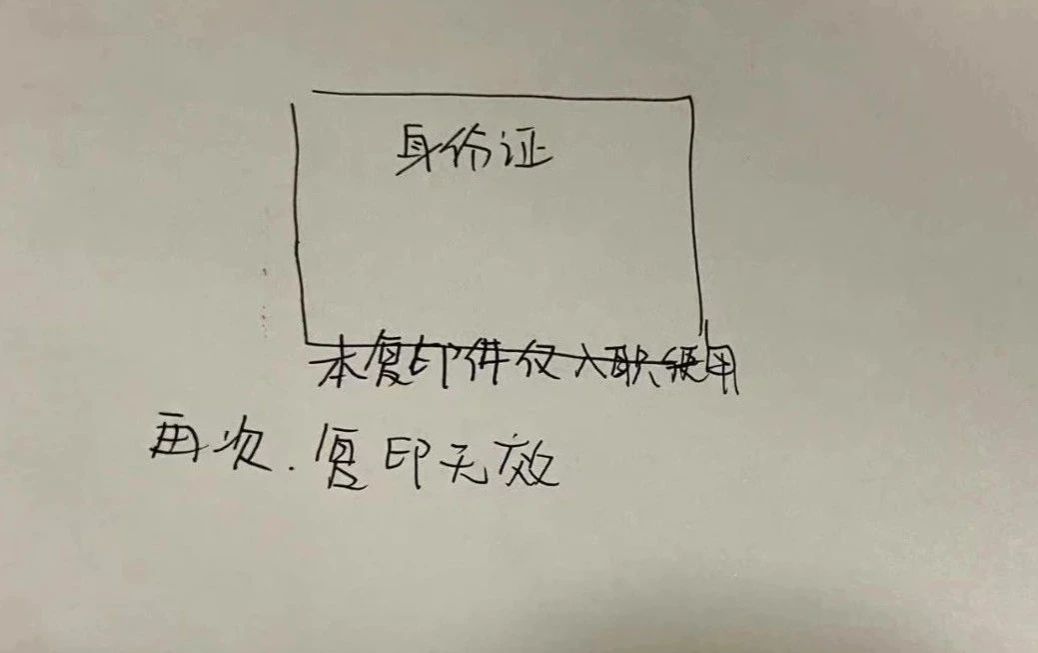 身份证
本复印件仅入职使用
再次.复印无效